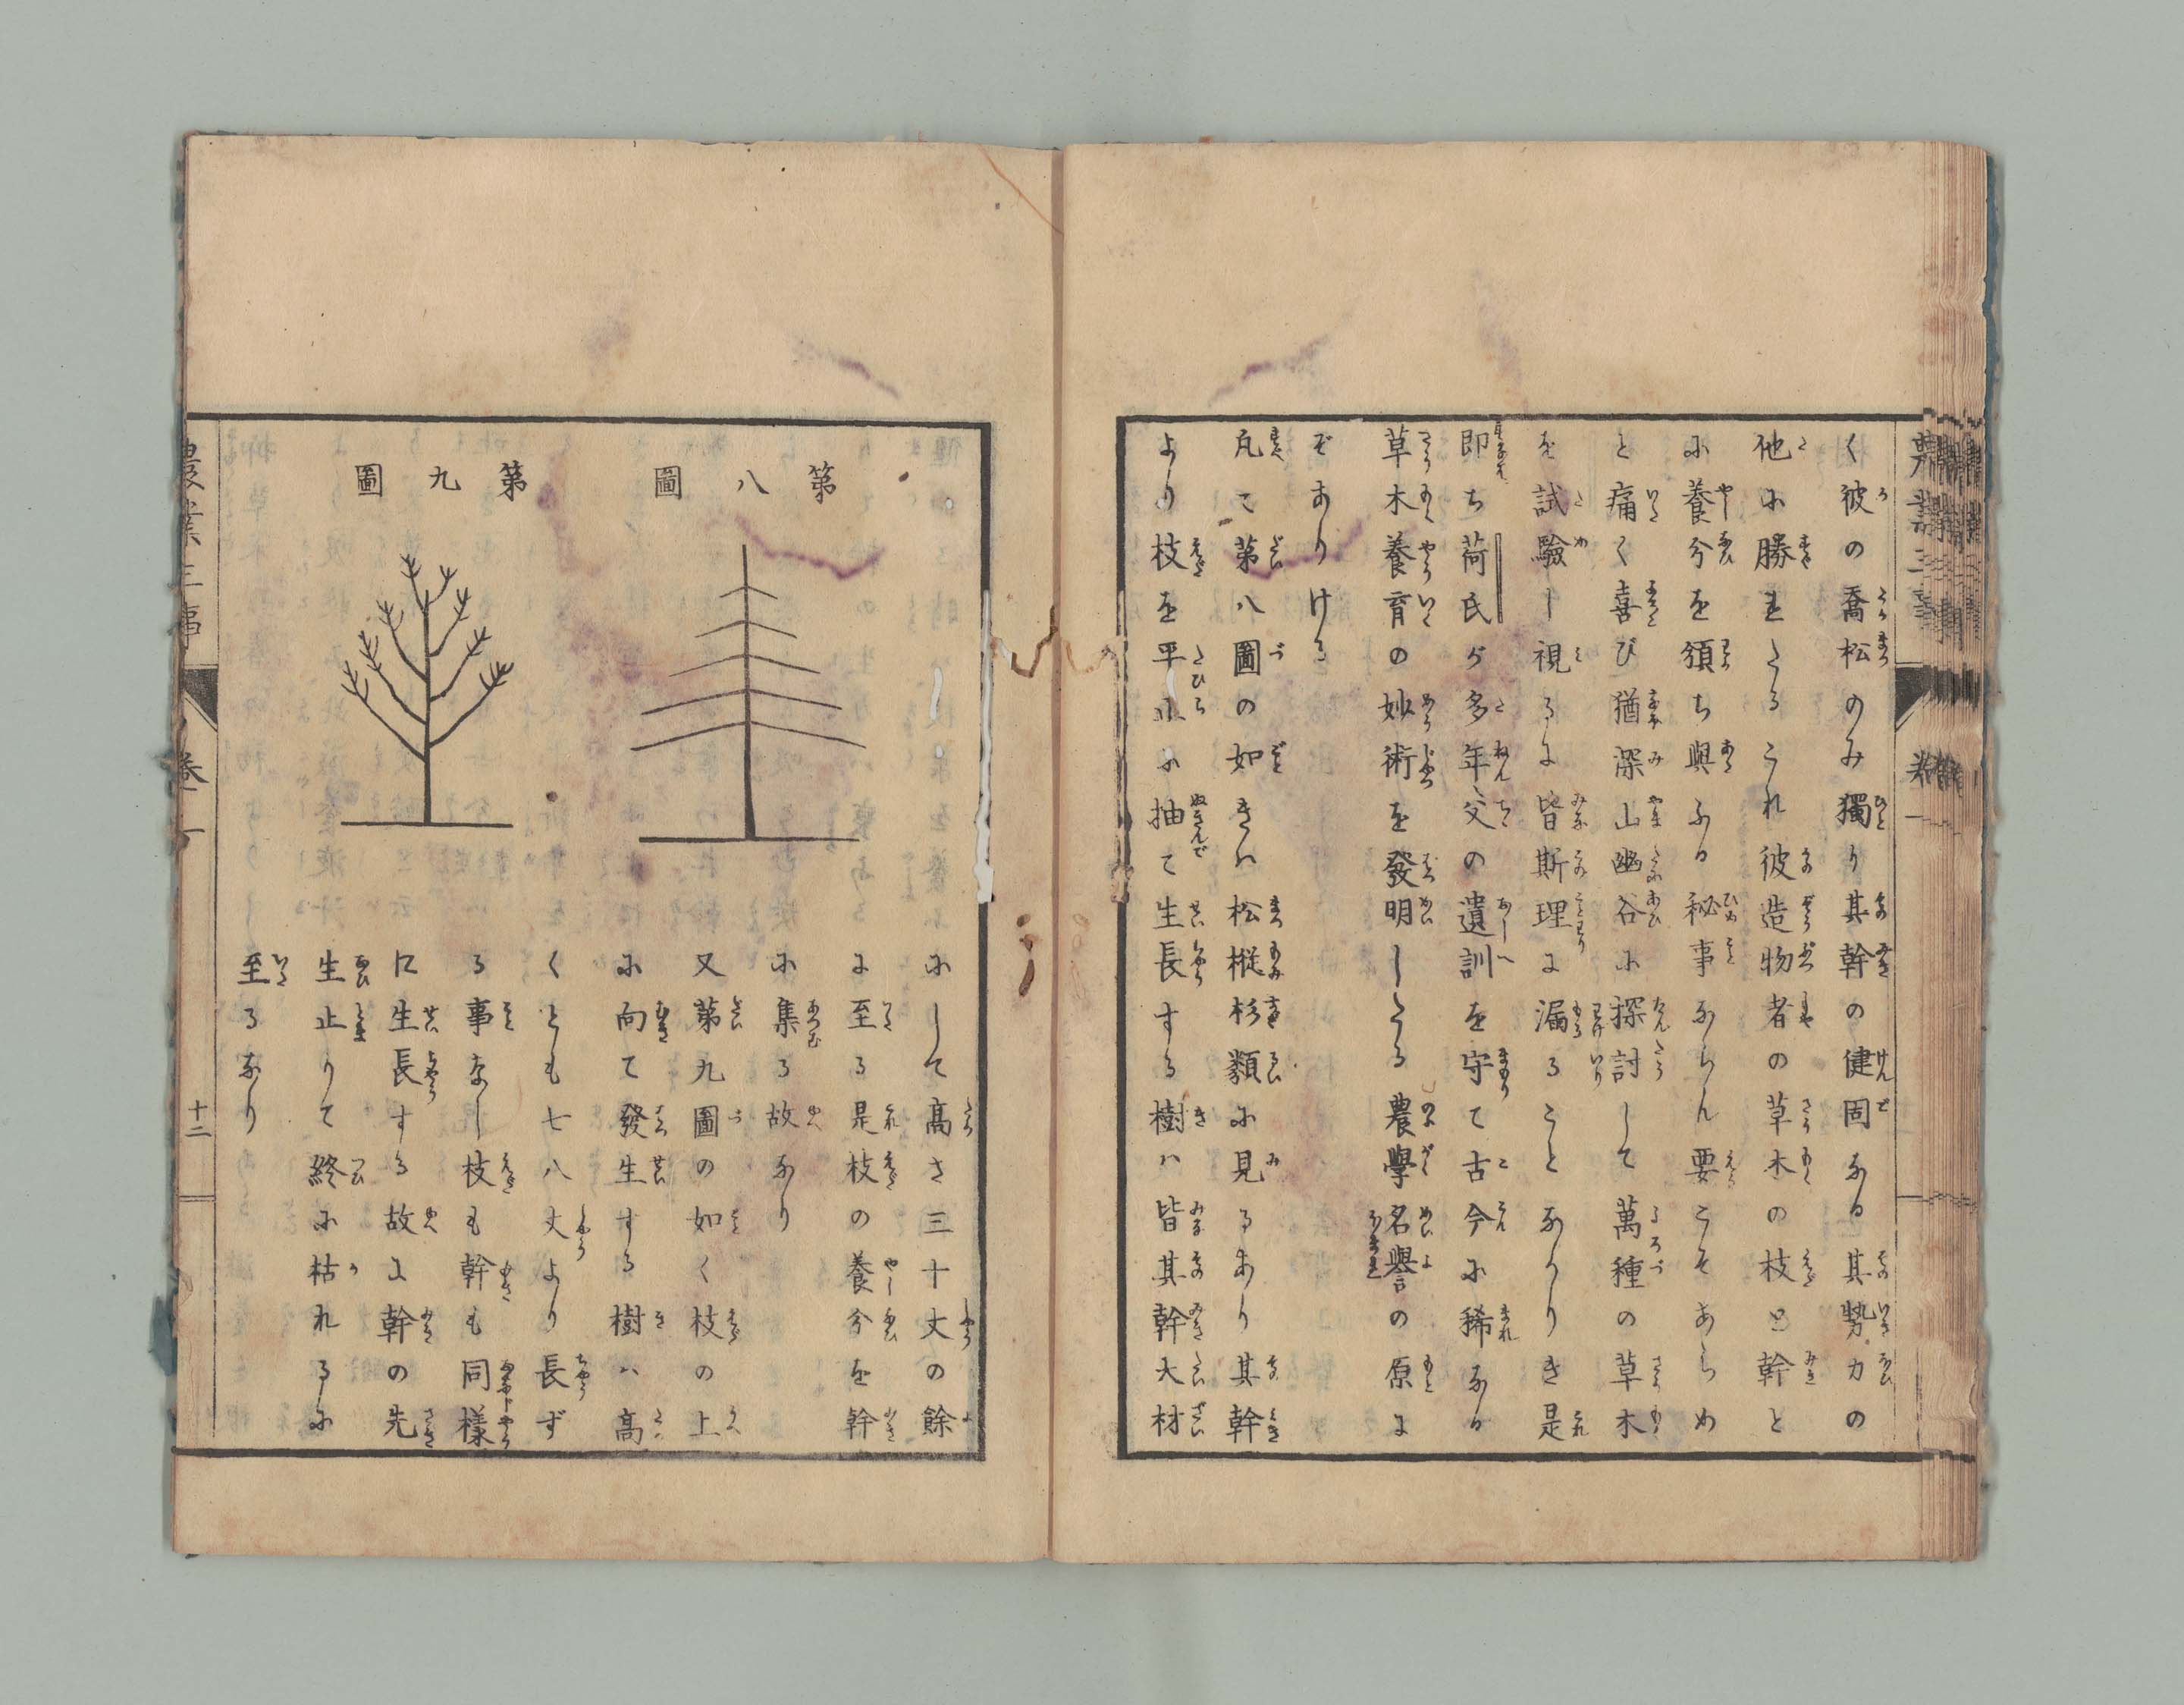 く彼の喬松のみ獨り其幹の健固なる其勢力の
他に勝れたるこれ彼造物者の草木の枝と幹と
に養分を領ち與ふる秘事ならん要こそあらめ
と痛く喜び猶深山幽谷に探討して萬種の草木
を試驗し視るに皆斯理に漏ることなかりき是
即ち荷氏が多年父の遺訓を守て古今に稀なる
草木養育の妙術を發明したる農學名譽の原に
ぞありける
凡て第八圖の如きハ松樅杉類に見るあり其幹
より枝を平に抽て生長する樹ハ皆其幹大材
第八圖
第九圖
にして高さ三十丈の餘
に至る是枝の養分を幹
に集る故なり
又第九圖の如く枝の上
に向て發生する樹ハ高
くとも七八丈より長ず
る事なし枝も幹も同樣
に生長する故に幹の先
生止りて終に枯れるに
至るなり
農業三事
卷上
十二